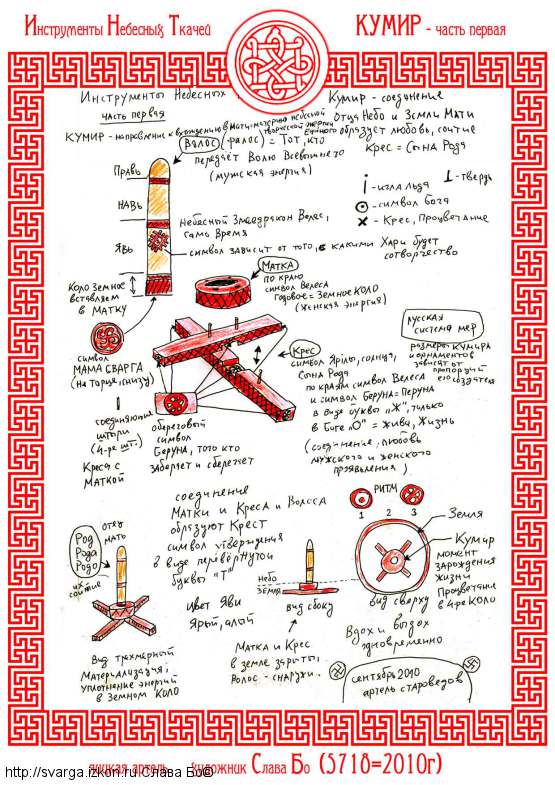 Инструменты Небесных Ткачей
КУМИР - часть первая
Инструменты Небесных
часть первая
Кумир - соединение
Отца Небо и Земли Мати
образует любовь, соитие
Крес = Сына Рода
КУМИР - направление к
ВОЛОС (фалос) = Тот, кто
передает Волю Всевышнего
(мужская энергия)
Правь
НАВЬ
ЯВЬ
Небесный Змей дракон Велес,
само Время
символ зависит от того, с какими Хари будет
сотворчество
игла льда
твердь
символ бога
Крес, Процветание
Коло Земное
вставляем
в МАТКУ
МАТКА
по краю
символ Велеса
годовое = Земное КОЛО
(женская энергия)
русская
система мер
размеры кумира
и орнаментов
зависят от
пропорций
его создателя
символ
МАМА СВАРГА
(на торце, снизу)
Крес
символ Ярилы, солнца,
Сына Рода
по краям символ Велеса
и символ Беруна=Перуна
в виде буквы "Ж", только
в Боге "О" = жива, Жизнь
(соединение, любовь
мужского и женского
проявления)
соединяющие
штыри
(4-ре шт.)
Креса с
МАТКОЙ
обереговый
символ
Беруна, того кто
заберяет и сберегает
соединение
Матки и Креса и Волоса
образуют Крест
символ утверждения
в виде перевернутой
буквы "Т"
РИТМ
1 2 3
Земля
Кумир
момент
зарождения
жизни
Процветание
в 4-ре КОЛО
Род
Рода
Родо
отец
мать
их
соитие
Цвет Яви
Ярый, алый
небо
земля
вид сбоку
вид сверху
Вдох и выдох
одновременно
Вид трёхмерный
Материализация,
уплотнение энергий
в Земном Коло
Матка и Крес
в земле зарыты,
волос - снаружи.
сентябрь 2010
артель староведов
артель художник Слава Бо (5718=2010г)
http://svarga.izkon.ru Слава Бо©